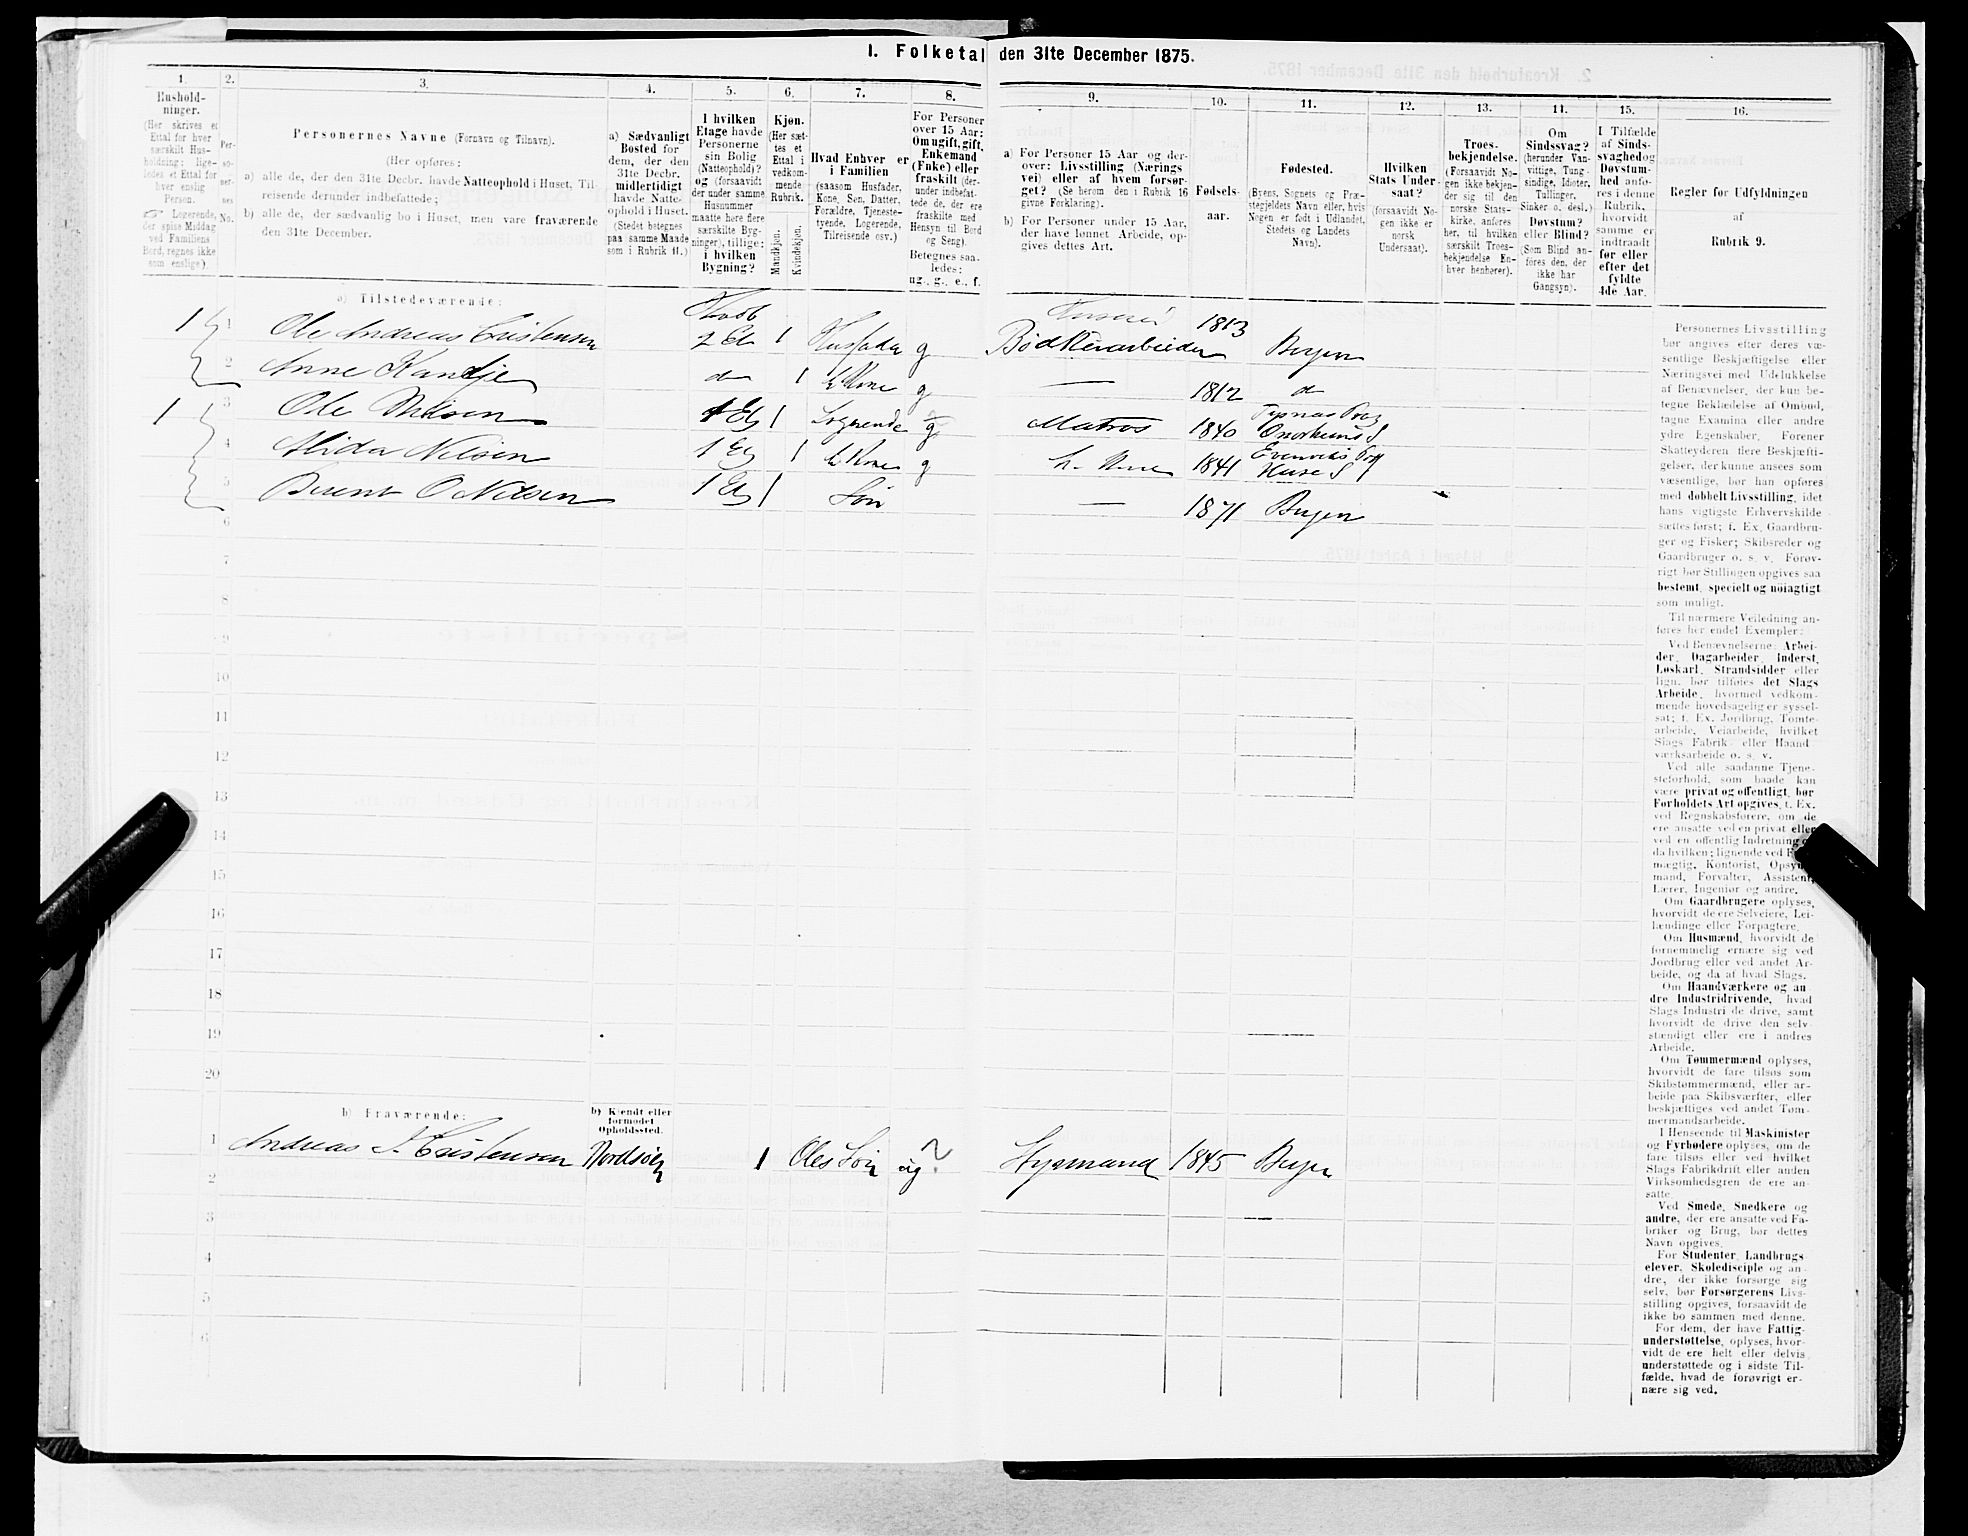 I. Folketal den 31te December 1875.
1. 2. 3. 4. 5. 6. 7. 8. 9. 10. 11. 12. 13. 14. 15. 16.
Hushold-
ninger.
(Her skrives et
Ettal for hver
særskilt Hus-
holdning; lige-
ledes et Ettal for
hver enslig
Person.
☞ Logerende,
der spise Middag
ved Familiens
Bord, regnes ikke
som enslige).
Per-
so-
ner-
nes
No.
Personernes Navne (Fornavn og Tilnavn).
(Her opføres:
a) alle de, der den 31te Decbr. havde Natteophold i Huset, Til-
reisende derunder indbefattede;
b) alle de, der sædvanlig bo i Huset, men vare fraværende
den 31te December.
a) Sædvanligt
Bosted for
dem, der den
31te Decbr.
midlertidigt
havde Natte-
ophold i Huset.
(Stedet betegnes
paa samme Maade
som i Rubrik 11.)
I hvilken
Etage havde
Personerne
sin Bolig
(Natteophold)?
og (forsaavidt
der under samme
Husnummer
maatte høre flere
særskilte Byg-
ninger), tillige:
i hvilken
Bygning?
Kjøn.
(Her sæt-
tes et
Ettal i
vedkom-
mende
Rubrik.
Mandkjøn.
Kvindekjøn.
Hvad Enhver er
i Familien
(saasom Husfader,
Kone, Søn, Datter,
Forældre, Tjeneste-
tyende, Logerende,
Tilreisende osv.)
For Personer
over 15 Aar:
Om ugift, gift,
Enkemand
(Enke) eller
fraskilt (der-
under indbefat-
tede de, der ere
fraskilte med
Hensyn til Bord
og Seng).
Betegnes saa-
ledes:
ug., g., e., f.
a) For Personer 15 Aar og der-
over: Livsstilling (Nærings
vei) eller af hvem forsør-
get? (Se herom den i Rubrik 16
givne Forklaring).
b) For Personer under 15 Aar,
der have lønnet Arbeide, op-
gives dettes Art.
Fødsels-
aar.
Fødested.
(Byens, Sognets og Præ-
stegjeldets Navn eller, hvis
Nogen er født i Udlandet,
Stedets og Landets
Navn).
Hvilken
Stats Under-
saat?
(forsaavidt No-
gen ikke er
norsk
Undersaat).
Troes-
bekjendelse.
(Forsaavidt No-
gen ikke bekjen-
der sig til den
norske Stats-
kirke, anføres
her, til hvilken
særskilt Troes-
bekjendelse En-
hver henhører).
Om
Sindssvag?
(herunder Van-
vittige, Tung-
sindige, Idioter,
Tullinger,
Sinker o. desl.)
Døvstum?
eller Blind?
(Som Blind an-
føres den, der
ikke har
Gangsyn).
I Tilfælde
af Sinds-
svaghed og
Døvstum-
hed anfø-
res i denne
Rubrik,
hvorvidt
samme er
indtraadt
før eller
efter det
fyldte
4de Aar.
Regler for Udfyldningen
af
Rubrik 9.
a) Tilstedeværende:
1 1 Ole Andreas Cristensen 2 Et 1 Husfader g Bødkerarbeider 1813 Bergen
2 Anne Kandje do 1 h Kone g — 1812 do
1 3 Ole Nilsen 1 Et 1 Logerende g Matros 1840
4 Alida Nilsen 1 Et 1 h Kone g h. Kone 1841 Evenviks Huse S
5 Berent O Nilsen 1 Et 1 Søn — 1871 Bergen
6
7
8
9
10
11
12
13
14
15
16
17
18
19
20
b) Fraværende:
b) Kjendt eller
formodet
Opholdssted.
1 Andreas Cristensen Nordsöen 1 Oles Søn ug ? Hyremand 1845 Bergen
2
3
4
5
6
Personernes Livsstilling
bør angives efter deres væ-
sentlige Beskjæftigelse eller
Næringsvei med Udelukkelse
af Benævnelser, der kun be-
tegne Beklædelse af Ombud,
tagne Examina eller andre
ydre Egenskaber. Forener
Skatteyderen flere Beskjæfti-
gelser, der kunne ansees som
væsentlige, bør han opføres
med dobbelt Livsstilling, idet
hans vigtigste Erhvervskilde
sættes først; f. Ex. Gaardbru-
ger og Fisker; Skibsreder og
Gaardbruger o. s. v. Forøv-
rigt bør Stillingen opgives saa
bestemt, specielt og nøiagtigt
som muligt.
Til nærmere Veiledning an-
føres her endel Exempler:
Ved Benævnelserne: Arbei-
der, Dagarbeider, Inderst,
Løskarl, Strandsidder eller
lign. bør tilføies det Slags
Arbeide, hvormed vedkom-
mende hovedsagelig er syssel-
sat; f. Ex. Jordbrug, Tomte-
arbeide, Veiarbeide, hvilket
Slags Fabrik- eller Haand
værksarbeide o. s. v.
Ved alle saadanne Tjene-
steforhold, som baade kan
være privat og offentligt, bør
Forholdets Art opgives, f. Ex.
ved Regnskabsførere, om de
ere ansatte ved en privat eller
ved en offentlig Indretning
da hvilken; lignende ved
mægtig, Kontorist, Opsyns-
mand, Forvalter, Assistent,
Lærer, Ingeniør og andre.
Om Gaardbrugere oplyses,
hvorvidt de ere Selveiere, Lei-
lændinge eller Forpagtere.
Om Husmænd, hvorvidt de
fornemmelig ernære sig ved
Jordbrug eller ved andet Ar-
beide, og da af hvad Slags.
Om Haandværkere og an
dre Industridrivende, hvad
Slags Industri de drive, samt
hvorvidt de drive den selv-
stændigt eller ere i andres
Arbeide.
Om Tømmermænd oplyses,
hvorvidt de fare tilsøs som
Skibstømmermænd, eller ar-
beide paa Skibsværfter, eller
beskjæftiges ved andet Tøm-
mermandsarbeide.
I Henseende til Maskinister
og Fyrbødere oplyses, om de
fare tilsøs eller ved hvilket
Slags Fabrikdrift eller anden
Virksomhedsgren de ere an-
satte.
Ved Smede, Snedkere og
andre, der ere ansatte ved Fa-
briker og Brug, bør dettes
Navn opgives.
For Studenter, Landbrugs
elever, Skoledisciple og an-
dre, der ikke forsørge sig
selv, bør Forsørgerens Livs-
stilling opgives, forsaavidt de
ikke bo sammen med denne.
For dem, der have Fattig-
understøttelse, oplyses, hvor-
vidt de ere helt eller delvis
understøttede og i sidste Til-
fælde, hvad de forøvrigt er-
nære sig ved.